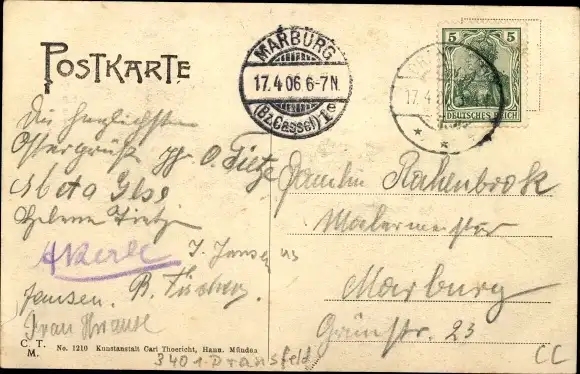 POSTKARTE
MARBURG
17.4.06 6-7N.
(Bz.Cassel) 1
5 5
DEUTSCHES REICH
17.4
Die herzlichsten
Ostergrüße O. Tietze
Meta Else
Helene Tietze
J. Jansen
Jansen. B. Fischer
Frau Krause
Familie Rahenbrock
Malermeister
Marburg
Grünstr. 23
C. T.
M.
No. 1210 Kunstanstalt Carl Thoericht, Hann. Münden
3401 Dransfeld
CC